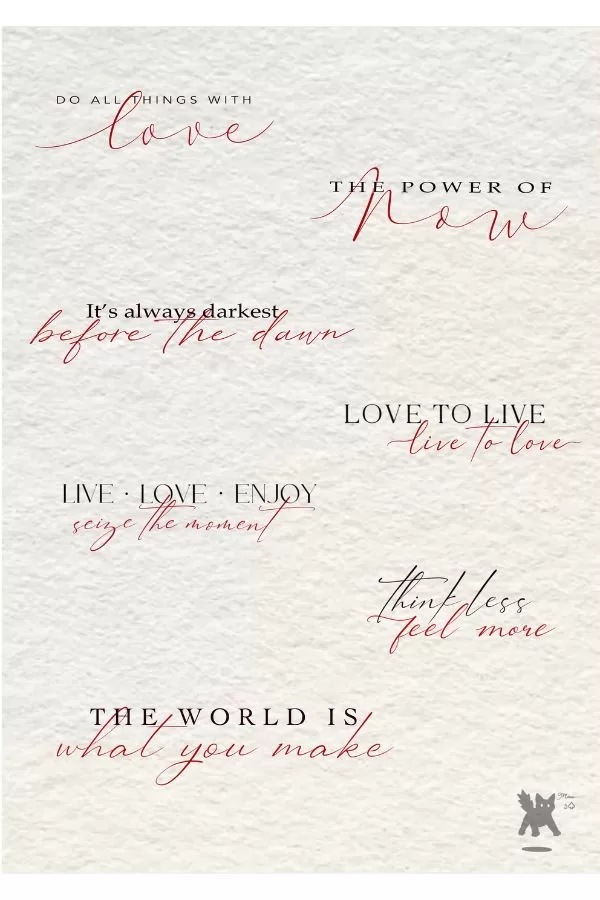 DO ALL THINGS WITH
love
THE POWER OF
Now
It's always darkest
before the dawn
LOVE TO LIVE
live to love
LIVE · LOVE · ENJOY
seize the moment
think less
feel more
THE WORLD IS
what you make